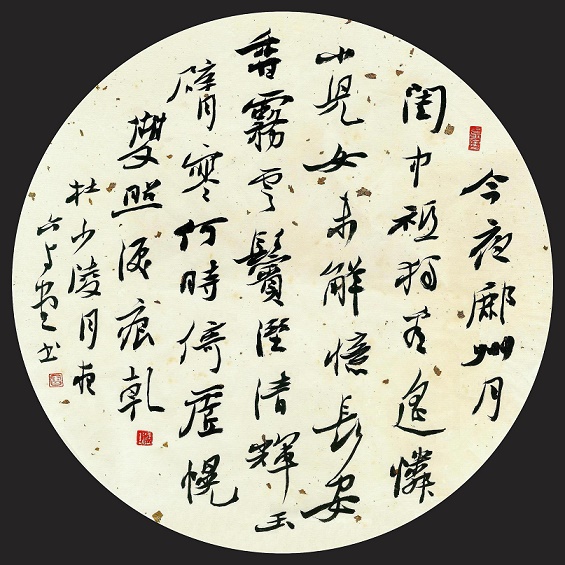 今夜鄜州月
閨中祗独看遙憐
小兒女未解憶長安
香霧雲鬢濕清輝玉
臂寒何時倚虛幌
雙照淚痕乾
杜少陵月夜
堂书